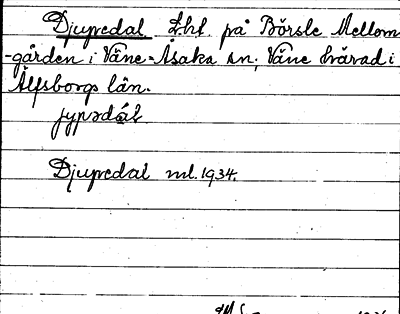 Djupedal Lht. på Börsle Mellom-
-gården i Väne-Åsaka sn; Väne härad i
Älfsborgs län.
jypədál
Djupedal ml. 1934.